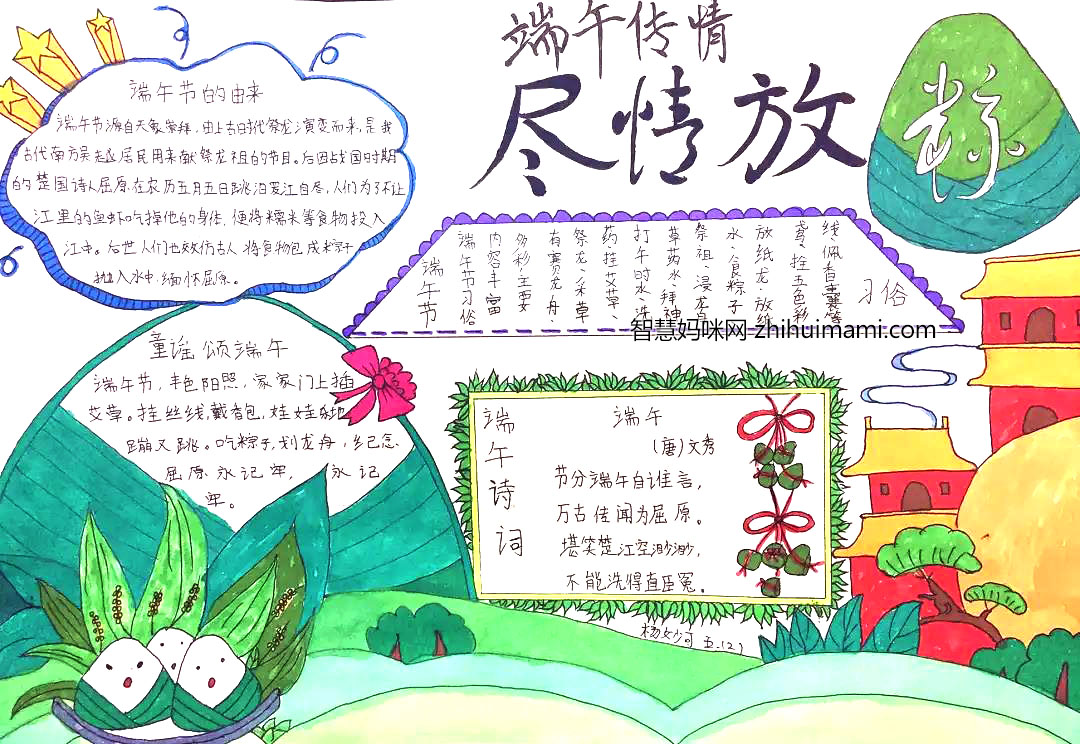 端午传情
尽情放
粽
端午节的由来
端午节源自天象崇拜,由上古时代祭龙演变而来,是我
古代南方吴越居民用来献祭龙祖的节日。后因战国时期
的楚国诗人屈原在农历五月五日跳汨罗江自尽,人们为了不让
江里的鱼虾吃掉他的身体,便将糯米等食物投入
江中。后世人们也效仿古人将食物包成粽子
抛入水中,缅怀屈原。
习俗
线、佩香囊等
鸢、拴五色彩
放纸龙、放纸
水、食粽子
祭祖、浸龙舟
草药水、拜神
打午时水、洗
药、挂艾草、
祭龙、采草
有赛龙舟、
多彩,主要
内容丰富
端午节习俗
端午节
童谣颂端午
端午节,丰色阳照,家家门上插
艾草。挂丝线,戴香包,娃娃乐地
蹦又跳。吃粽子,划龙舟,纪念
屈原永记年,永记
年。
端午诗词
端午
(唐)文秀
节分端午自谁言,
万古传闻为屈原。
堪笑楚江空渺渺,
不能洗得直臣冤。
五.(2)
智慧妈咪网-zhihuimami.com